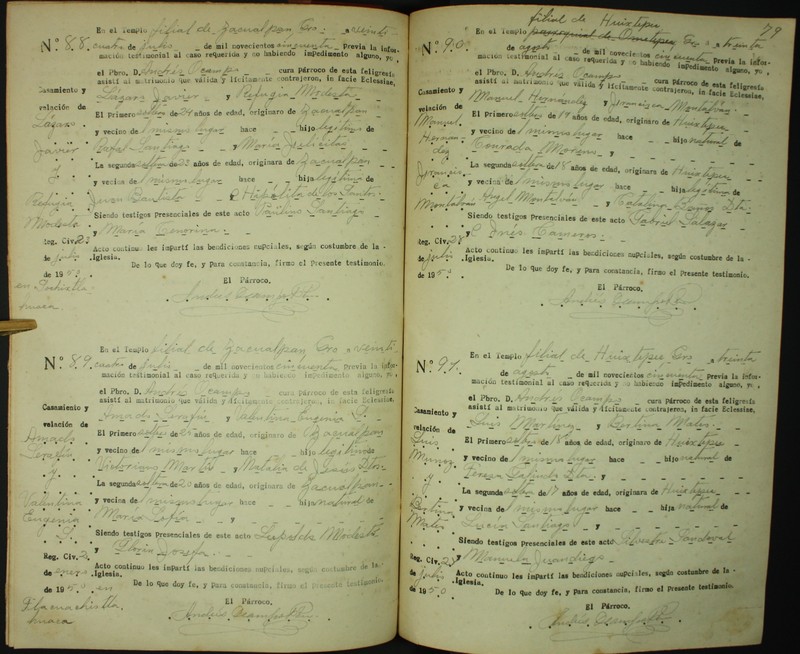 En el Templo filial de Zacualpan Gro. a veinti-
N.º 88. cuatro de Julio de mil novecientos cincuenta Previa la infor-
mación testimonial al caso requerida y no habiendo impedimento alguno, yo,
el Pbro. D. Andrés Ocampo cura párroco de esta feligresía
asistí al matrimonio que válida y lícitamente contrajeron, in facie Eclesiae,
Casamiento y
Lázaro Javier y Refugia Modesta
velación de
El primero soltero de 24 años de edad, originario de Zacualpan
Lázaro
y vecino del mismo lugar hace hijo legítimo de
Javier
Rafael Santiago y María Felicitas
y
La segunda soltera de 23 años de edad, originara de Zacualpan
y vecina del mismo lugar hace hija legítima de
Refugia
Juan Bautista y Hipólita de los Santos
Modesta
Siendo testigos presenciales de este acto Paulino Santiago
y María Cenorina
Reg. Civ. 23
Acto continuo les impartí las bendiciones nupciales, según costumbre de la
de julio Iglesia.
De lo que doy fe, y para constancia, firmo el presente testimonio.
de 1950
El Párroco,
en
Andrés Ocampo
En el Templo filial de Zacualpan Gro a veinti-
N.º 89. cuatro de Julio de mil novecientos cincuenta Previa la infor-
mación testimonial al caso requerida y no habiendo impedimento alguno, yo,
el Pbro. D. Andrés Ocampo cura párroco de esta feligresía
asistí al matrimonio que válida y lícitamente contrajeron, in facie Eclesiae,
Casamiento y
Amado Serafín y Valentina Eugenia
velación de
El primero soltero de años de edad, originario de Zacualpan
Amado
Serafín
y vecino del mismo lugar hace hijo legítimo de
y
Victoriano y Natalia de Jesús
La segunda soltera de 20 años de edad, originara de Zacualpan
Valentina
y vecina del mismo lugar hace hija natural de
Eugenia
María y
Siendo testigos presenciales de este acto Modesto
y Josefa
Reg. Civ.
Acto continuo les impartí las bendiciones nupciales, según costumbre de la
de enero Iglesia.
De lo que doy fe, y para constancia, firmo el presente testimonio.
de 1950 en
El Párroco,
Andrés Ocampo
79
filial de Huixtepec
En el Templo parroquial de Ometepec Gro a treinta
N.º 90.
de agosto de mil novecientos cincuenta Previa la infor-
mación testimonial al caso requerida y no habiendo impedimento alguno, yo,
el Pbro. D. Andrés Ocampo cura párroco de esta feligresía
asistí al matrimonio que válida y lícitamente contrajeron, in facie Eclesiae,
Casamiento y
Manuel Hernández y Francisca Montalván
velación de
El primero soltero de 19 años de edad, originario de Huixtepec
Manuel
y vecino del mismo lugar hace hijo natural de
Hernan-
dez
Conrada Moreno y
y
La segunda soltera de 18 años de edad, originara de Huixtepec
Francis-
ca
y vecina del mismo lugar hace hija legítima de
Montalván
Ángel Montalván y Catalina
Siendo testigos presenciales de este acto Gabriel Salazar
y Inés
Reg. Civ. 29
Acto continuo les impartí las bendiciones nupciales, según costumbre de la
de julio Iglesia.
De lo que doy fe, y para constancia, firmo el presente testimonio.
de 1950
El Párroco,
Andrés Ocampo
En el Templo filial de Huixtepec Gro. a treinta
N.º 91.
de agosto de mil novecientos cincuenta Previa la infor-
mación testimonial al caso requerida y no habiendo impedimento alguno, yo,
el Pbro. D. Andrés Ocampo cura párroco de esta feligresía
asistí al matrimonio que válida y lícitamente contrajeron, in facie Eclesiae,
Casamiento y
Luis y Bertina Mateos
velación de
El primero soltero de 18 años de edad, originario de Huixtepec
Luis
y vecino del mismo lugar hace hijo natural de
y
La segunda soltera de 17 años de edad, originara de Huixtepec
Bertina
y vecina del mismo lugar hace hija natural de
Lucia Santiago y
Siendo testigos presenciales de este acto Silvestre Sandoval
y Manuela Juan diego
Reg. Civ. 29
Acto continuo les impartí las bendiciones nupciales, según costumbre de la
de julio Iglesia.
De lo que doy fe, y para constancia, firmo el presente testimonio.
de 1950
El Párroco,
Andrés Ocampo